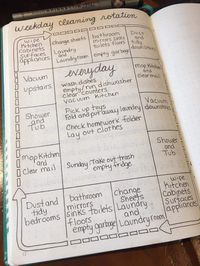 weekday cleaning rotation
wipe
Kitchen
cabinets
surfaces
appliances
change sheets
Laundry
and
Laundry room
bathroom
mirrors sinks
toilets floors
empty garbage
Dust
and
tidy
downstairs
Vacuum
upstairs
everyday
wash dishes
empty/run dishwasher
clear counters
vacuum kitchen
Pick up toys
Fold and put away laundry
Check homework folder
Lay out clothes
Sunday: take out trash
empty fridge
mop Kitchen
and
clear mail
Vacuum
downstairs
Shower
and
Tub
Shower
and
Tub
mop Kitchen
and
clear mail
Dust and
tidy
bedrooms
bathroom
mirrors
sinks toilets
floors
empty garbage
change
sheets
Laundry
and
Laundry room
wipe
Kitchen
cabinets
surfaces
appliances